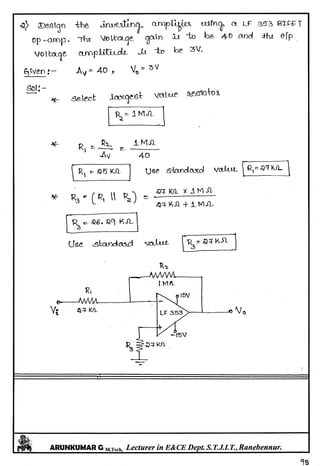 Q) Design the inverting amplifier using a LF 353 BIFET
op-amp. The Voltage gain is to be 40 and the o/p
voltage amplitude is to be 3V.
Given :- Av = 40 , Vo = 3V
Sol:-
* Select largest value resistor
R2 = 1MΩ
* R1 = R2/Av = 1MΩ/40
R1 = 25 KΩ Use standard value R1=27KΩ
* R3 = (R1 || R2) = 27 KΩ x 1MΩ / 27 KΩ + 1MΩ
R3 = 26.29 KΩ
Use standard value R3 = 27KΩ
R2
1MΩ
R1
15V
Vi 27 KΩ LF 353 Vo
-15V
R3 27KΩ
ARUNKUMAR G M.Tech, Lecturer in E&CE Dept. S.T.J.I.T., Ranebennur.
98